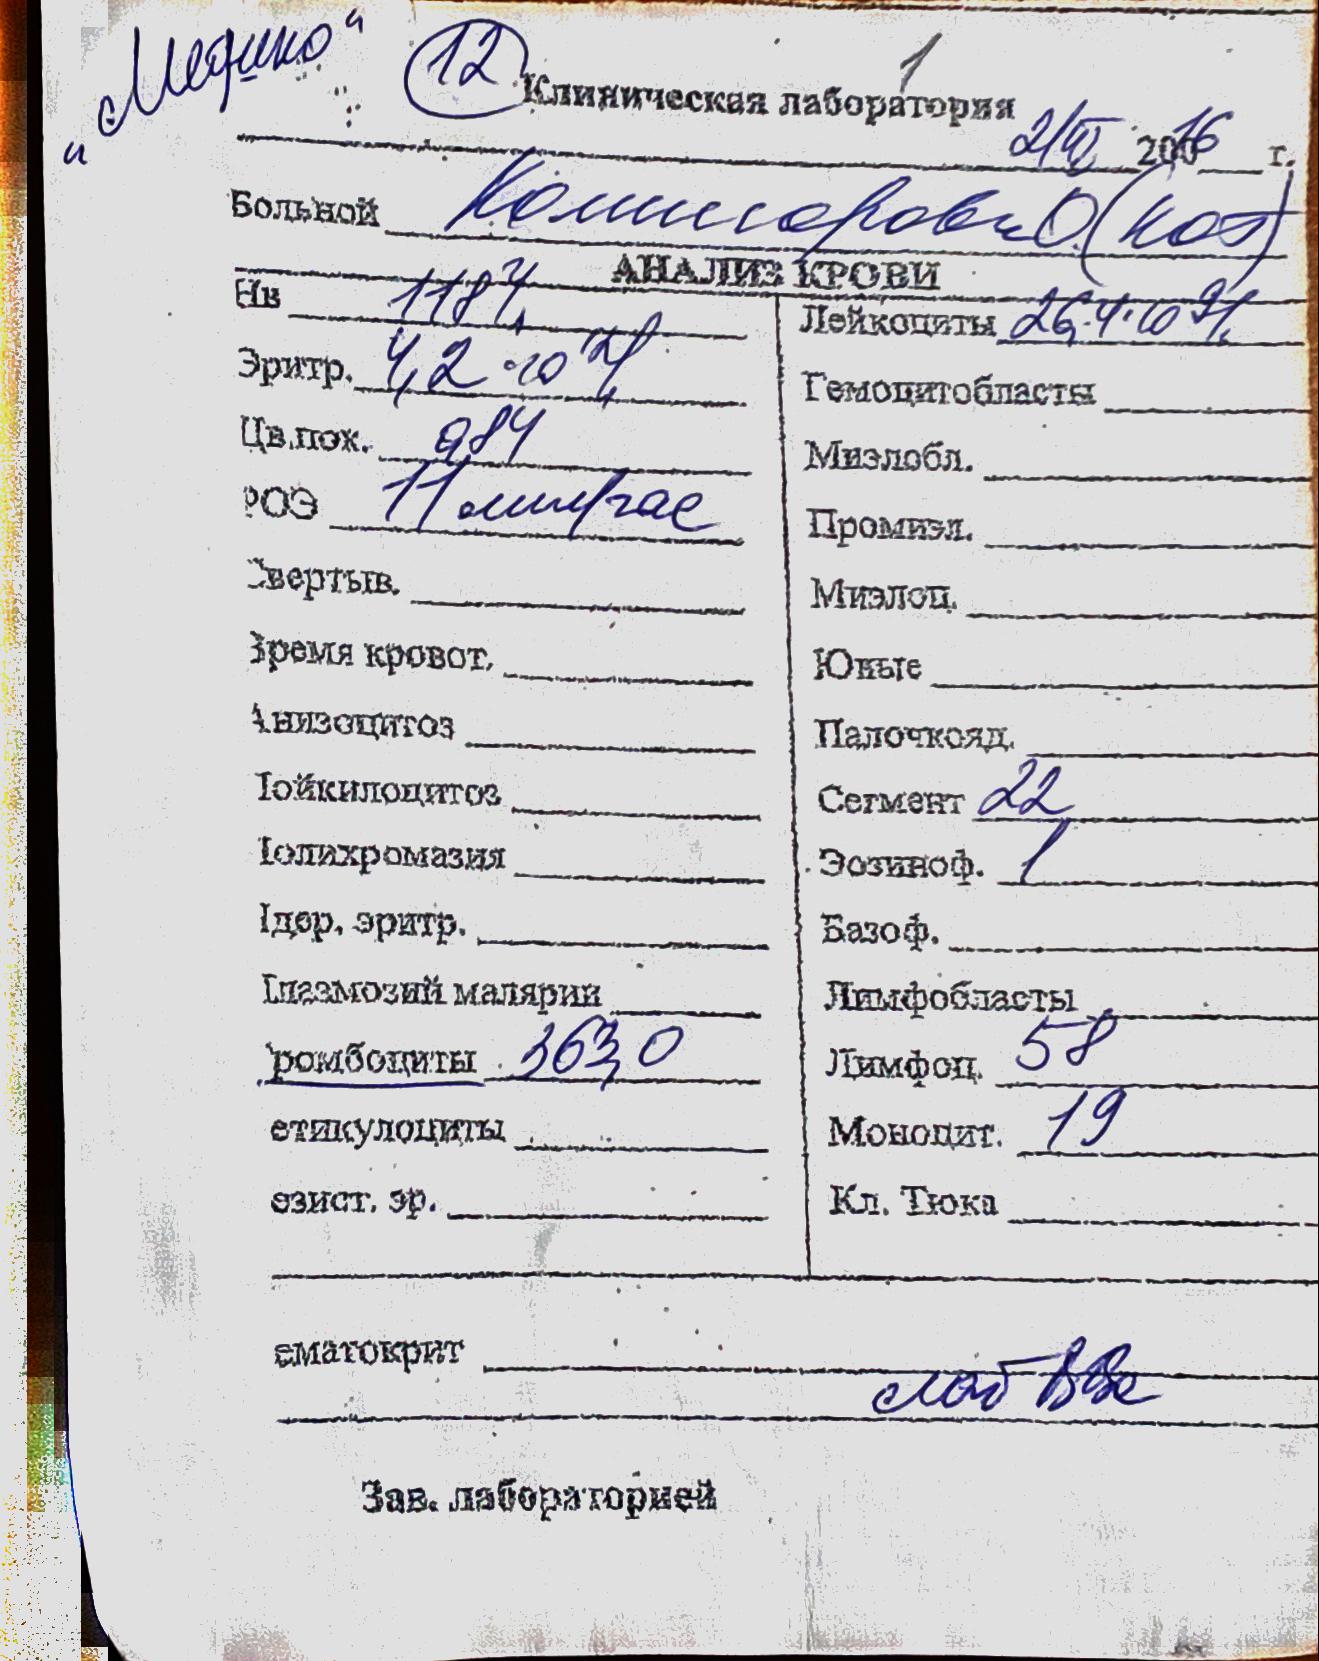 "Медико" 12 1
Клиническая лаборатория
2/VI 2016 г.
Больной (кот)
АНАЛИЗ КРОВИ
Нв 118 г/л Лейкоциты 26,4·10 9/л
Эритр. 4,2·10 Гемоцитобласты
Цв.пок. 0,84 Миэлобл.
РОЭ 11 мм/час Промиэл.
Свертыв. Миэлоц.
Время кровот. Юные
Анизоцитоз Палочкояд.
Пойкилоцитоз Сегмент 22
Полихромазия Эозиноф. 1
Ядер. эритр. Базоф.
Плазмозий малярии Лимфобласты
ромбоциты 363,0 Лимфоц. 58
етикулоциты Моноцит. 19
езист. эр. Кл. Тюка
ематокрит
Зав. лабораторией